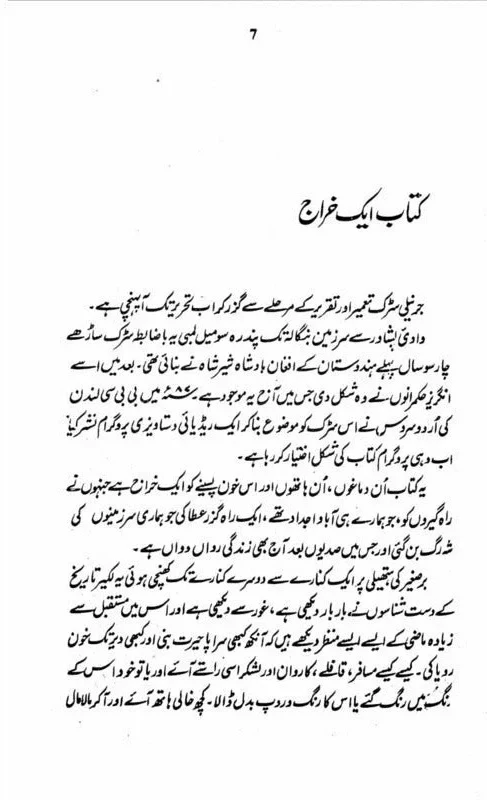 7
کتاب ایک خراج
جرنیلی سڑک تعمیر اور تقریر کے مرحلے سے گزر کر اب تحریر تک آ پہنچی ہے۔
وادیٔ پشاور سے سرزمین بنگالہ تک پندرہ سو میل لمبی یہ باضابطہ سڑک ساڑھے
چار سو سال پہلے ہندوستان کے افغان بادشاہ شیر شاہ نے بنائی تھی۔ بعد میں اسے
انگریز حکمرانوں نے وہ شکل دی جس میں آج یہ موجود ہے میں بی بی سی لندن
کی اُردو سروس نے اس سڑک کو موضوع بنا کر ایک ریڈیائی دستاویزی پروگرام نشر کیا
اب وہی پروگرام کتاب کی شکل اختیار کر رہا ہے۔
یہ کتاب اُن دماغوں، اُن ہاتھوں اور اس خون پسینے کو ایک خراج ہے جنہوں نے
راہ گیروں کو، جو ہمارے ہی آباو اجداد تھے، ایک راہ گزر عطا کی جو ہماری سرزمینوں کی
شہ رگ بن گئی اور جس میں صدیوں بعد آج بھی زندگی رواں دواں ہے۔
برصغیر کی ہتھیلی پر ایک کنارے سے دوسرے کنارے تک کھنچی ہوئی یہ لکیر تاریخ
کے دست شناسوں نے بار بار دیکھی ہے، غور سے دیکھی ہے اور اس میں مستقبل سے
زیادہ ماضی کے ایسے ایسے منظر دیکھے ہیں کہ آنکھ کبھی سراپا حیرت بنی اور کبھی دیر تک خون
رویا کی۔ کیسے کیسے مسافر، قافلے، کارواں اور لشکر اسی راستے آئے اور یا تو خود اس کے
رنگ میں رنگ گئے یا اس کا رنگ و روپ بدل ڈالا۔ کچھ خالی ہاتھ آئے اور آ کر مالا مال